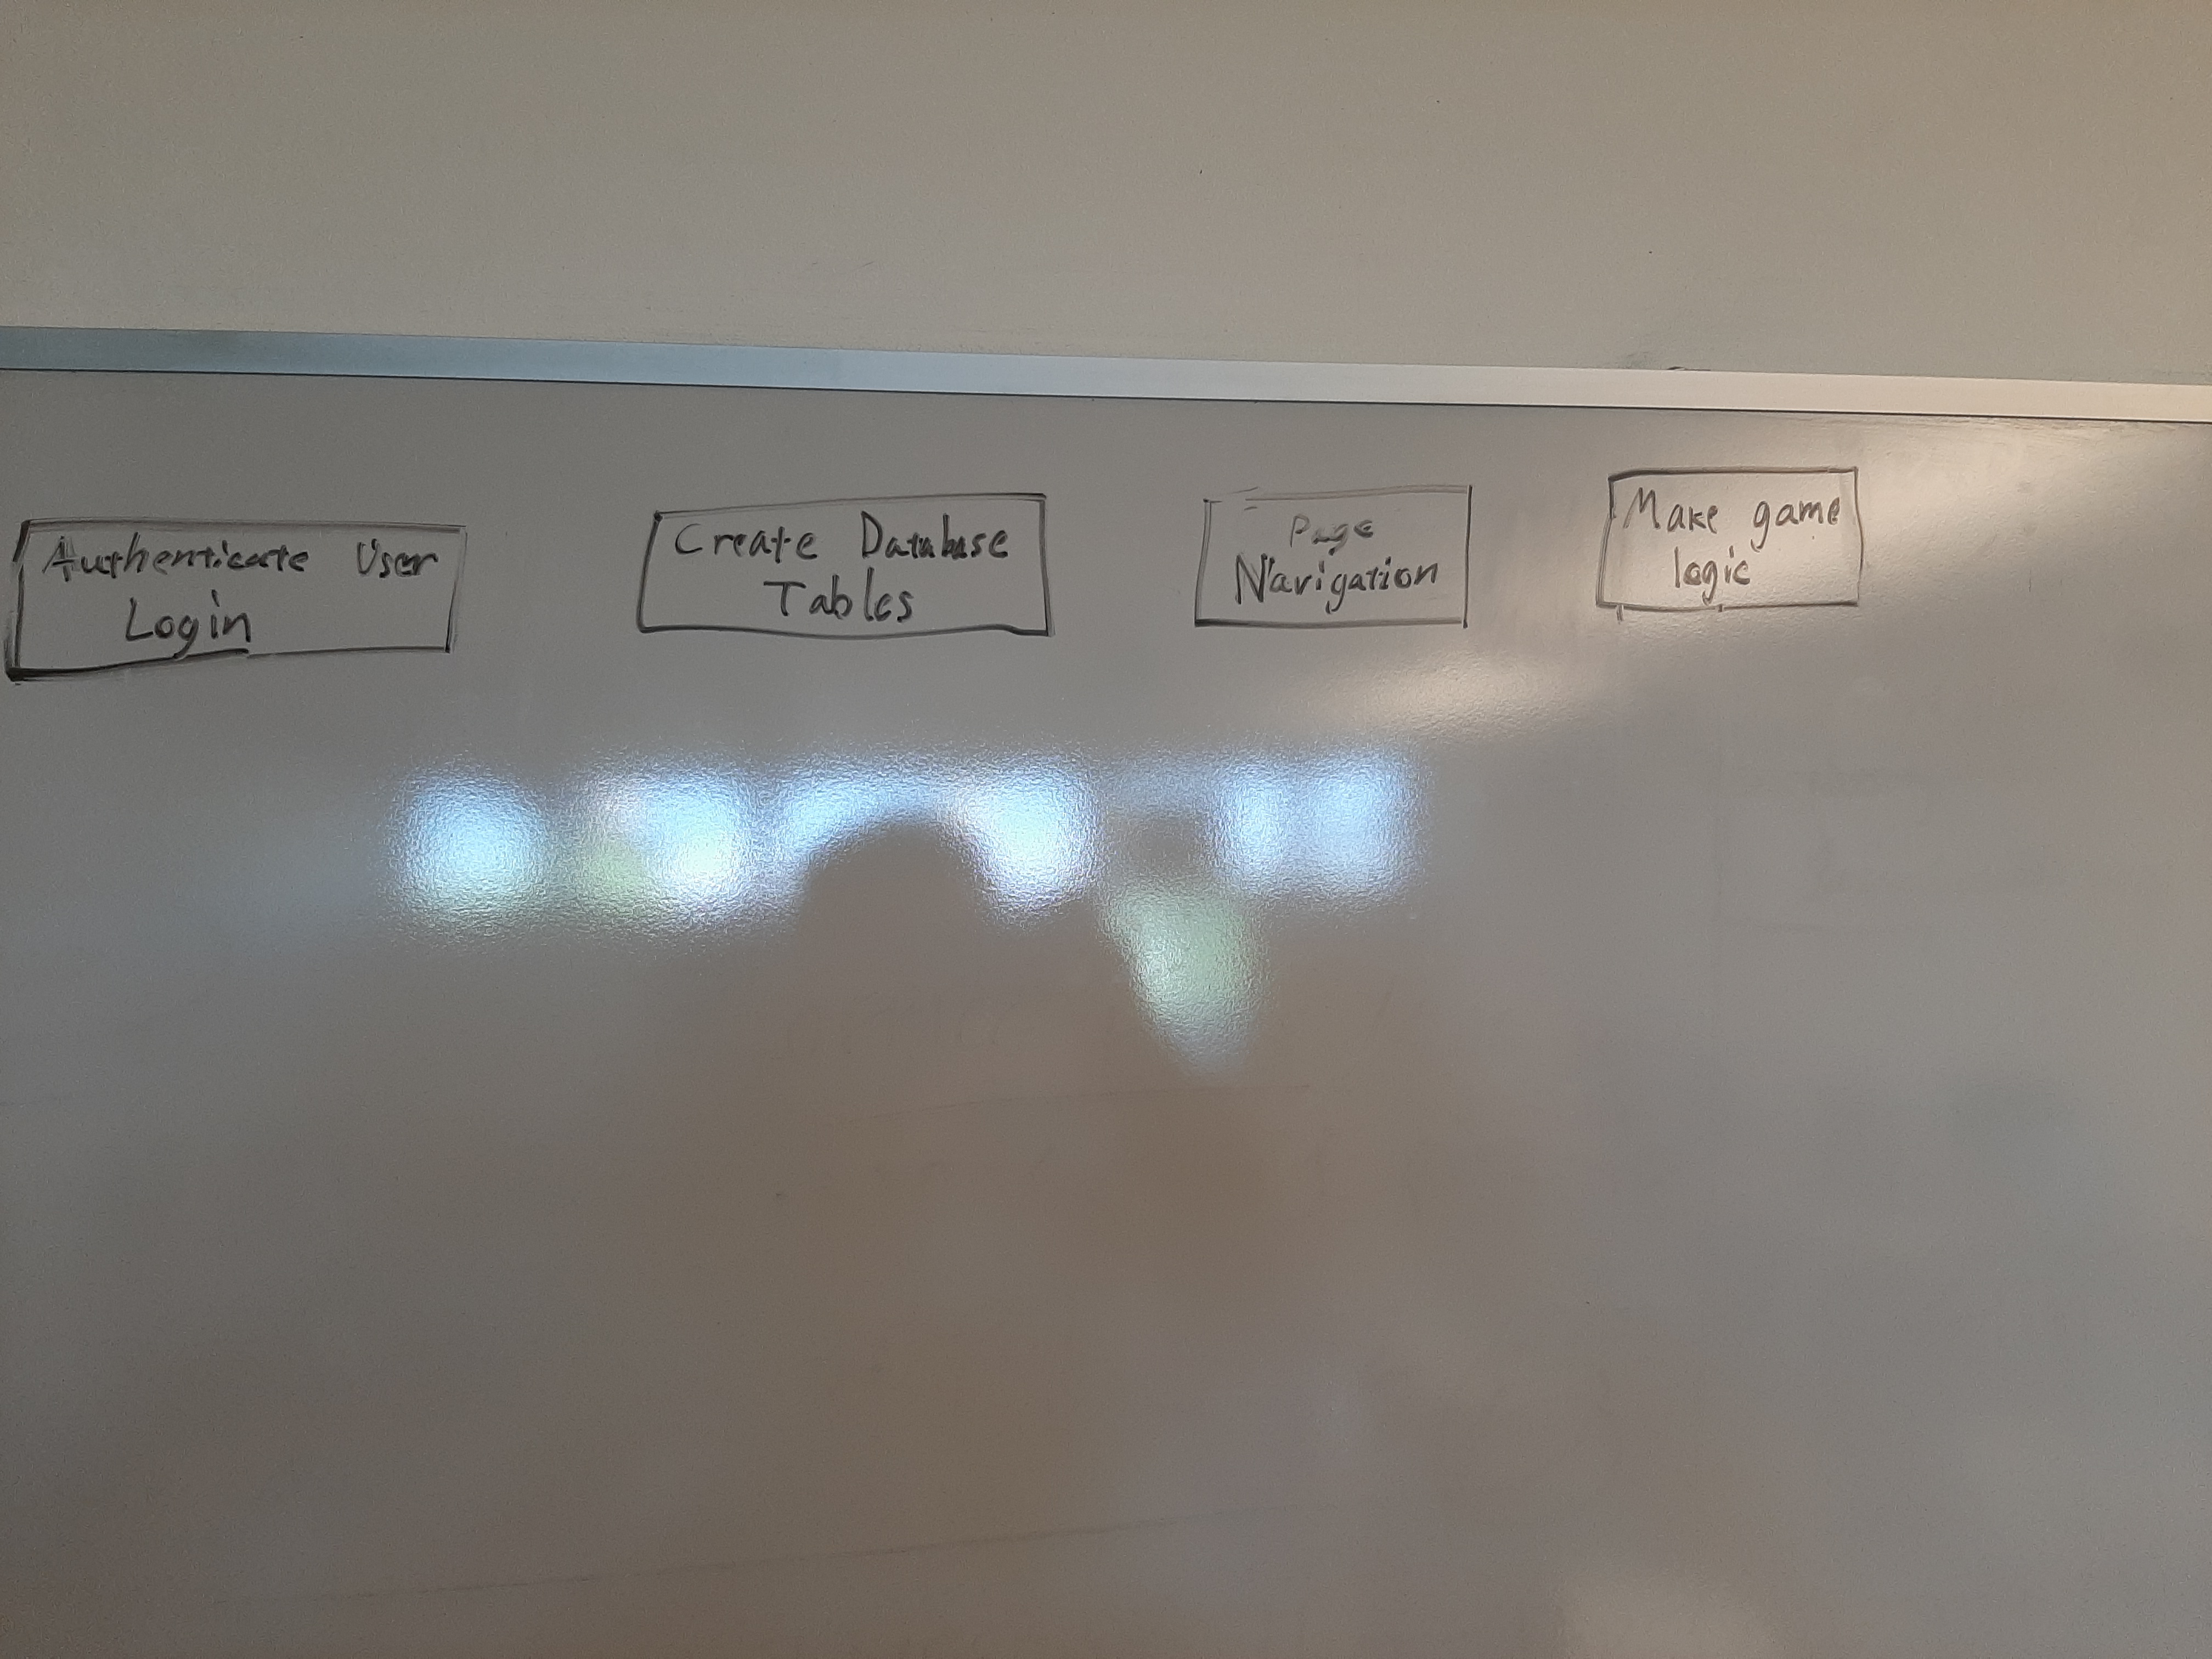 Authenticate User
Login
Create Database
Tables
Page
Navigation
Make game
logic